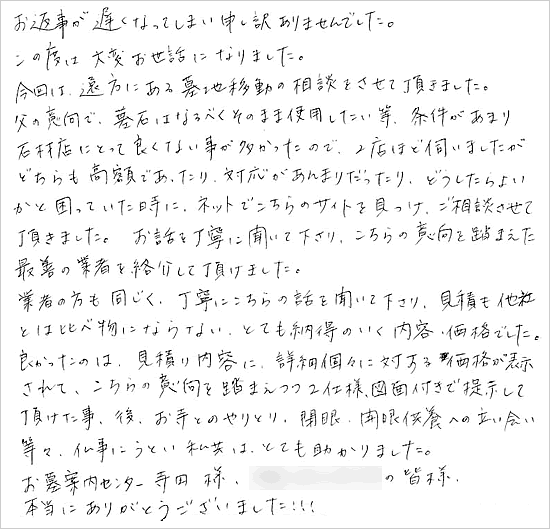 お返事が遅くなってしまい申し訳ありませんでした。
この度は大変お世話になりました。
今回は、遠方にある墓地移動の相談をさせて頂きました。
父の意向で、墓石はなるべくそのまま使用したい等、条件があまり
石材店にとって良くない事が多かったので、2店ほど伺いましたが
どちらも高額であったり、対応があんまりだったり、どうしたらよい
かと困っていた時に、ネットでこちらのサイトを見つけ、ご相談させて
頂きました。 お話を丁寧に聞いて下さり、こちらの意向を踏まえた
最善の業者を紹介して頂けました。
業者の方も同じく、丁寧にこちらの話を聞いて下さり、見積も他社
とは比べ物にならない、とても納得のいく内容・価格でした。
良かったのは、見積り内容に、詳細個々に対する価格が表示
されて、こちらの意向を踏まえつつ2仕様、図面付きで提示して
頂けた事、後、お寺とのやりとり、閉眼・開眼供養への立ち会い
等々、仏事にうとい私共は、とても助かりました。
お墓案内センター寺田様、 の皆様、
本当にありがとうございました!!!